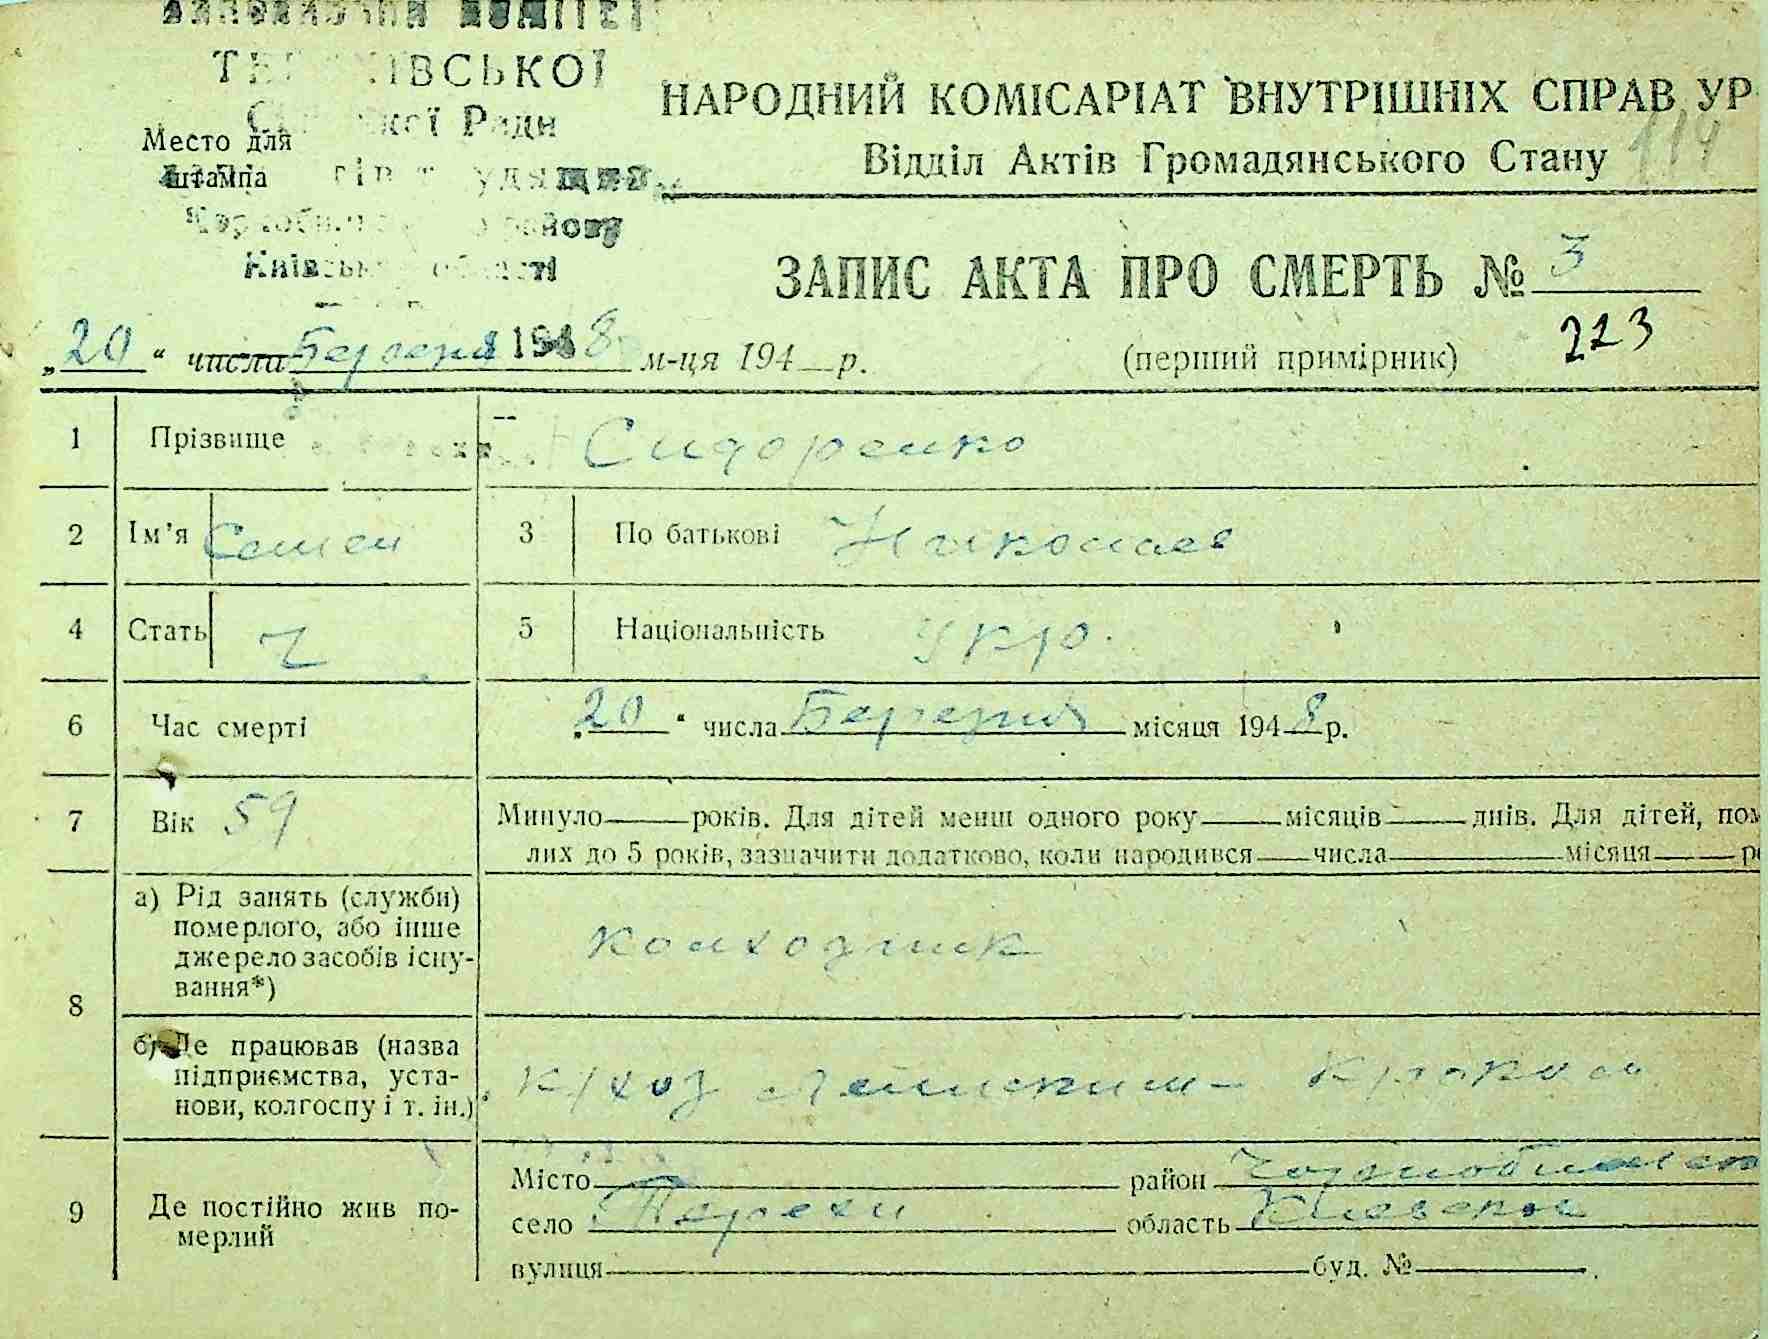 ТЕРЕХІВСЬКОЇ
Сільської Ради
Место для
штампа
Чорнобильського району
Київської області
НАРОДНИЙ КОМІСАРІАТ ВНУТРІШНІХ СПРАВ УР
114
Відділ Актів Громадянського Стану
ЗАПИС АКТА ПРО СМЕРТЬ № 3
„20“ числа Березня 1948 м-ця 194 р.
(перший примірник)
223
1 Прізвище Сидоренко
2 Ім’я Семен 3 По батькові Николаев
4 Стать Ч 5 Національність Укр.
6 Час смерті „20“ числа Березня місяця 1948 р.
7 Вік 59 Минуло років. Для дітей менш одного року місяців днів. Для дітей, пом
лих до 5 років, зазначити додатково, коли народився числа місяця ро
8 а) Рід занять (служби)
померлого, або інше
джерело засобів існу-
вання*)
колхозник
б) Де працював (назва
підприємства, уста-
нови, колгоспу і т. ін.)
к/хоз
9 Де постійно жив по-
мерлий
Місто район
село Терехи область Киевская
вулиця буд. №